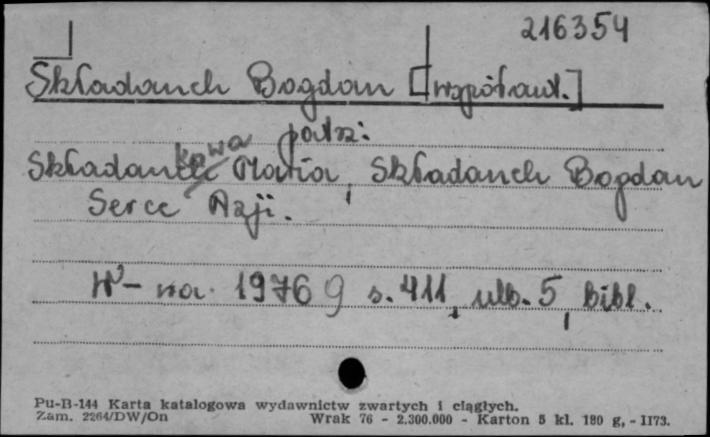 216354
Składanek Bogdan [współaut.]
patrz:
Składankowa Maria, Składanek Bogdan
Serce Azji.
W-wa. 1976 9 s. 411, nlb. 5, bibl.
Pu-B-144 Karta katalogowa wydawnictw zwartych i ciągłych.
Zam. 2264/DW/On Wrak 76 - 2.300.000 - Karton 5 kl. 180 g, - II73.